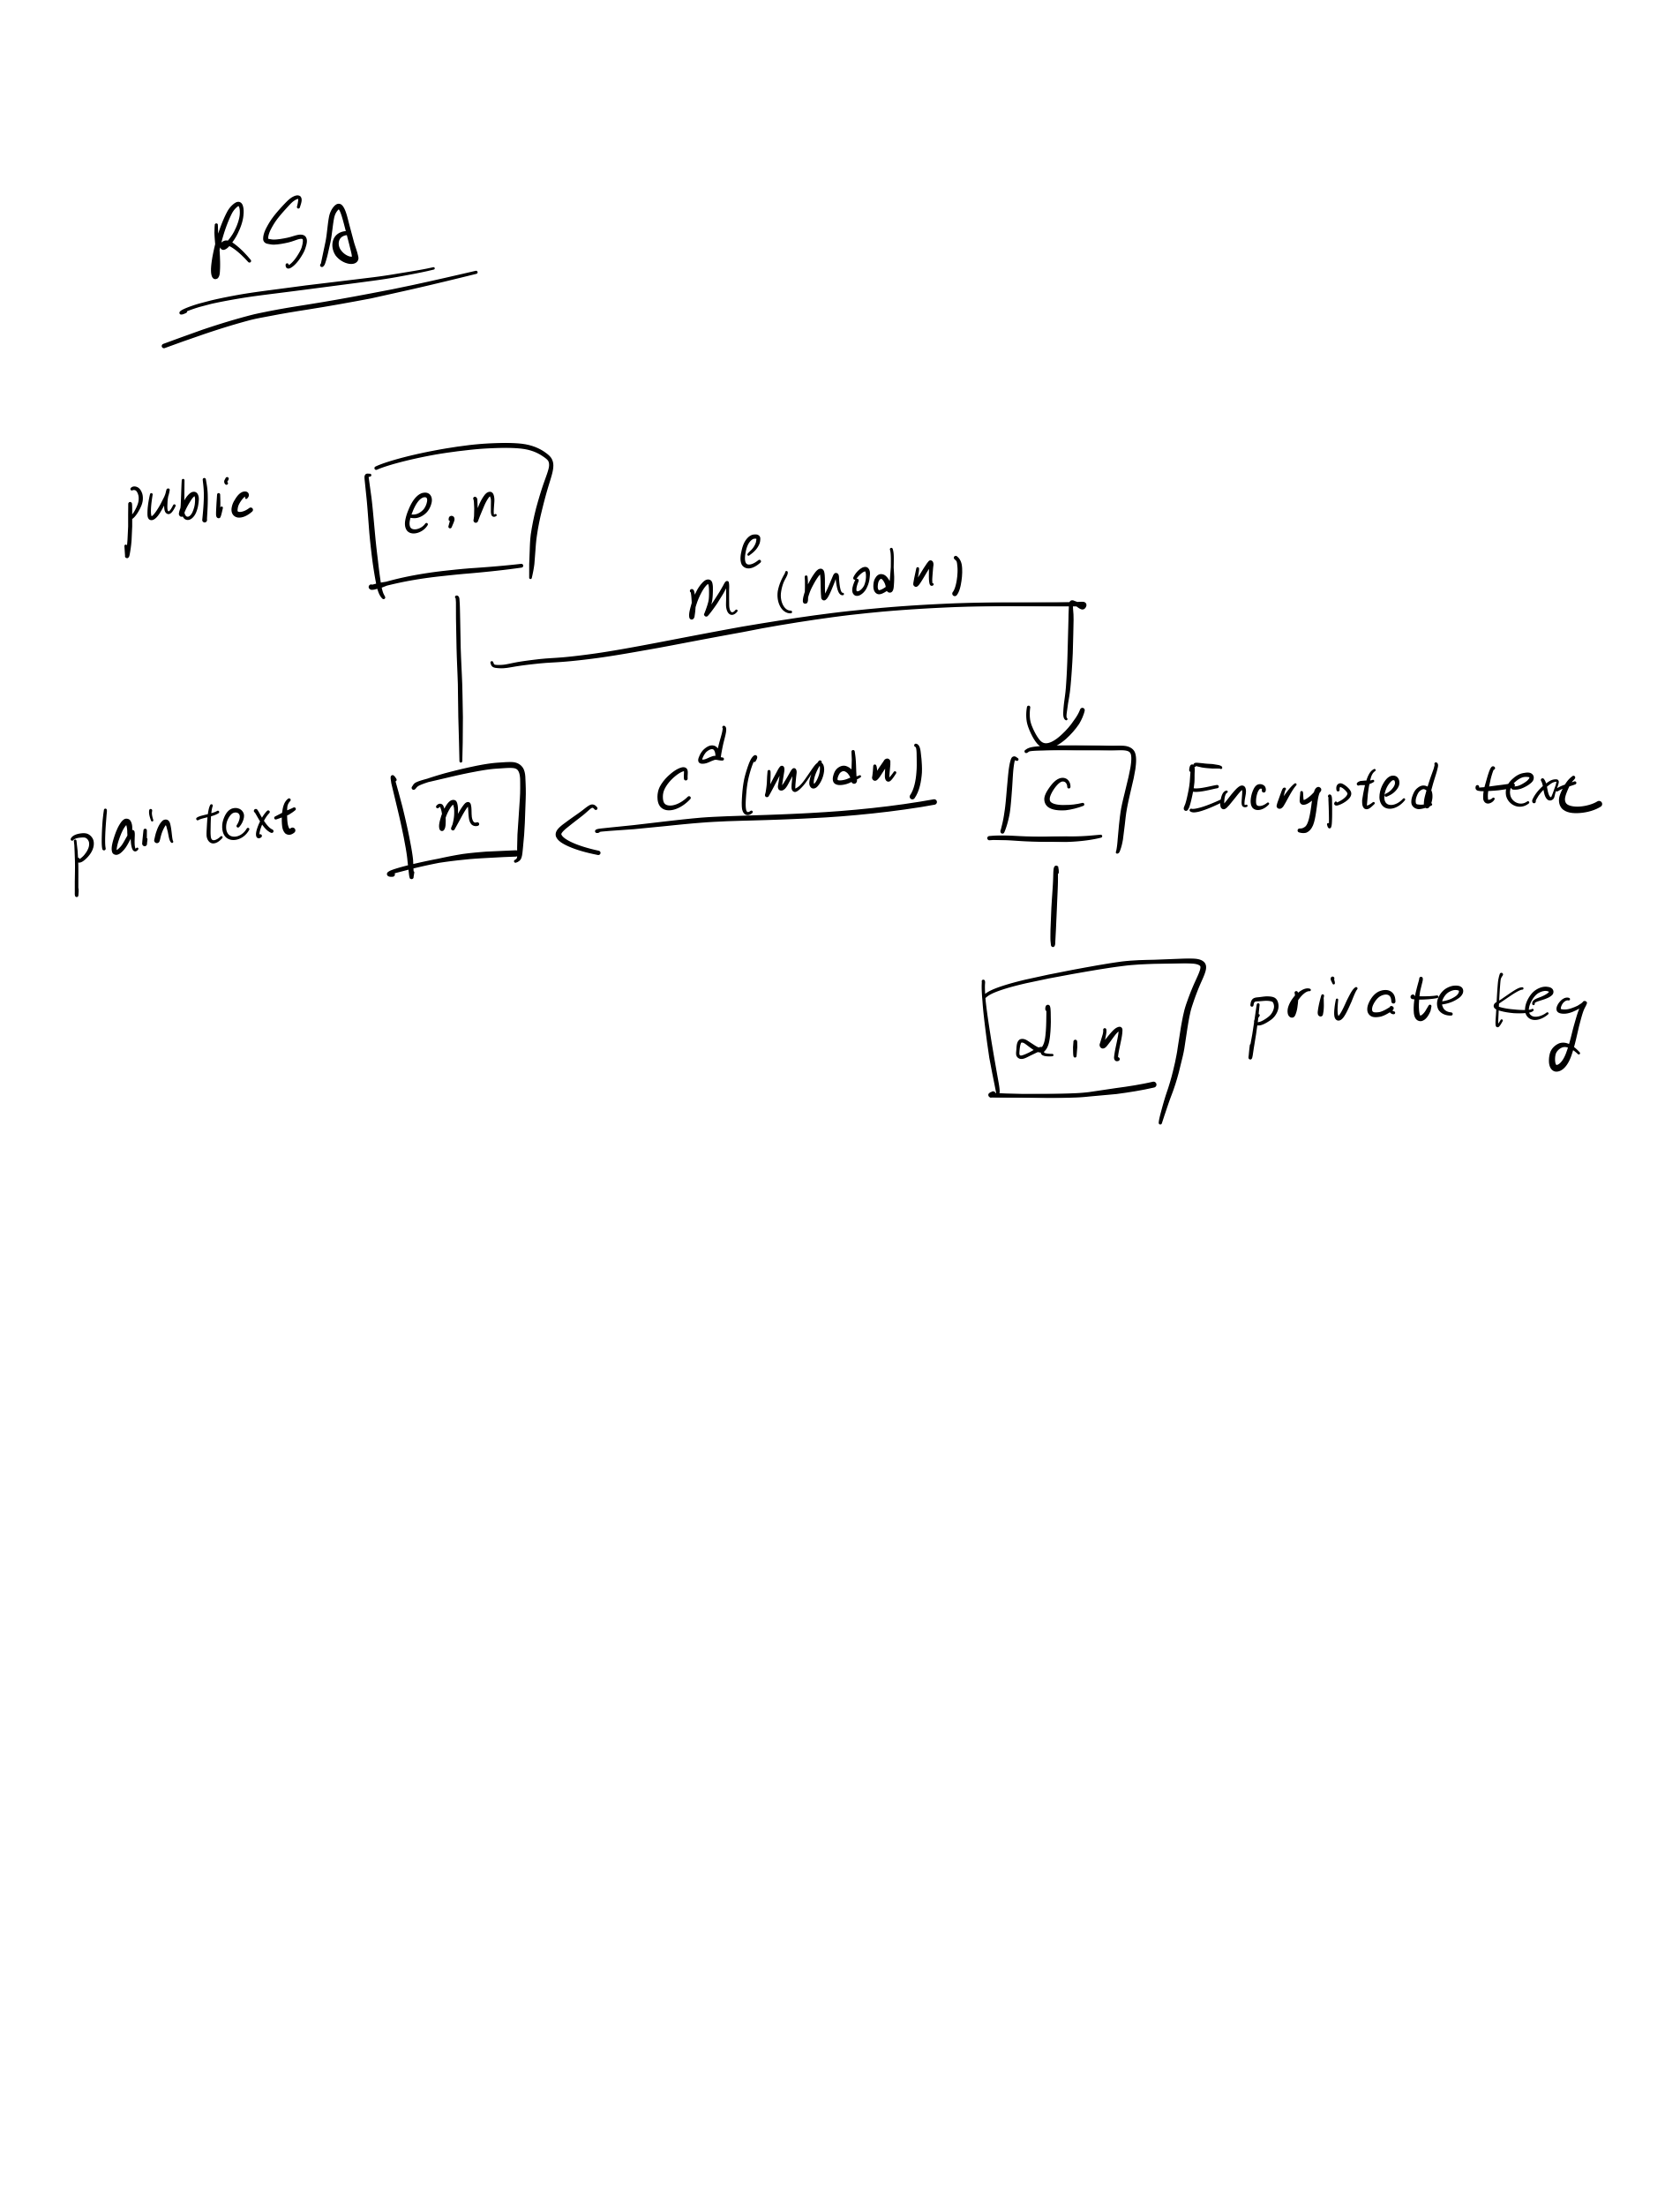 RSA
public e, n
m^e (mod n)
plain text m c^d (mod n) c Encrypted text
d, n private key